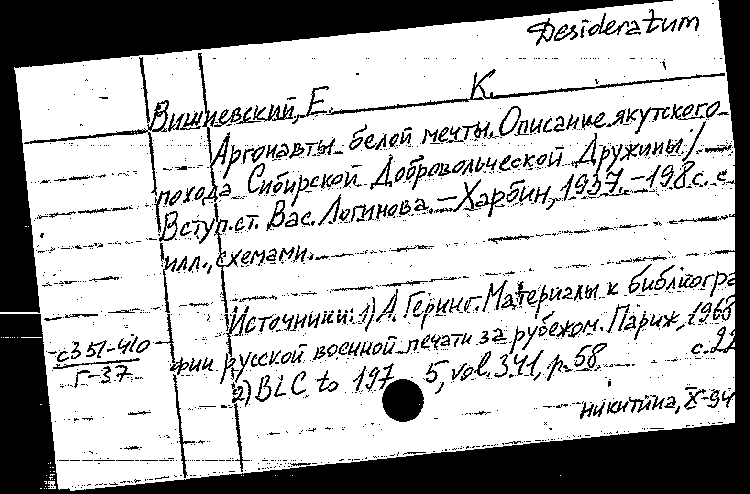 Desideratum
Вишневский, Е. К.
Аргонавты белой мечты. Описание якутского
похода Сибирской Добровольческой Дружины./
Вступ. ст. Вас. Логинова. – Харбин, 1937. – 198 с. с
илл., схемами.
Источники: 1) А. Геринг. Материалы к библиогра
фии русской военной печати за рубежом. Париж, 1968
с. 22
2) BLC to 197 5, vol. 341, p. 58
с351-410
Г-37
никитина, X-94